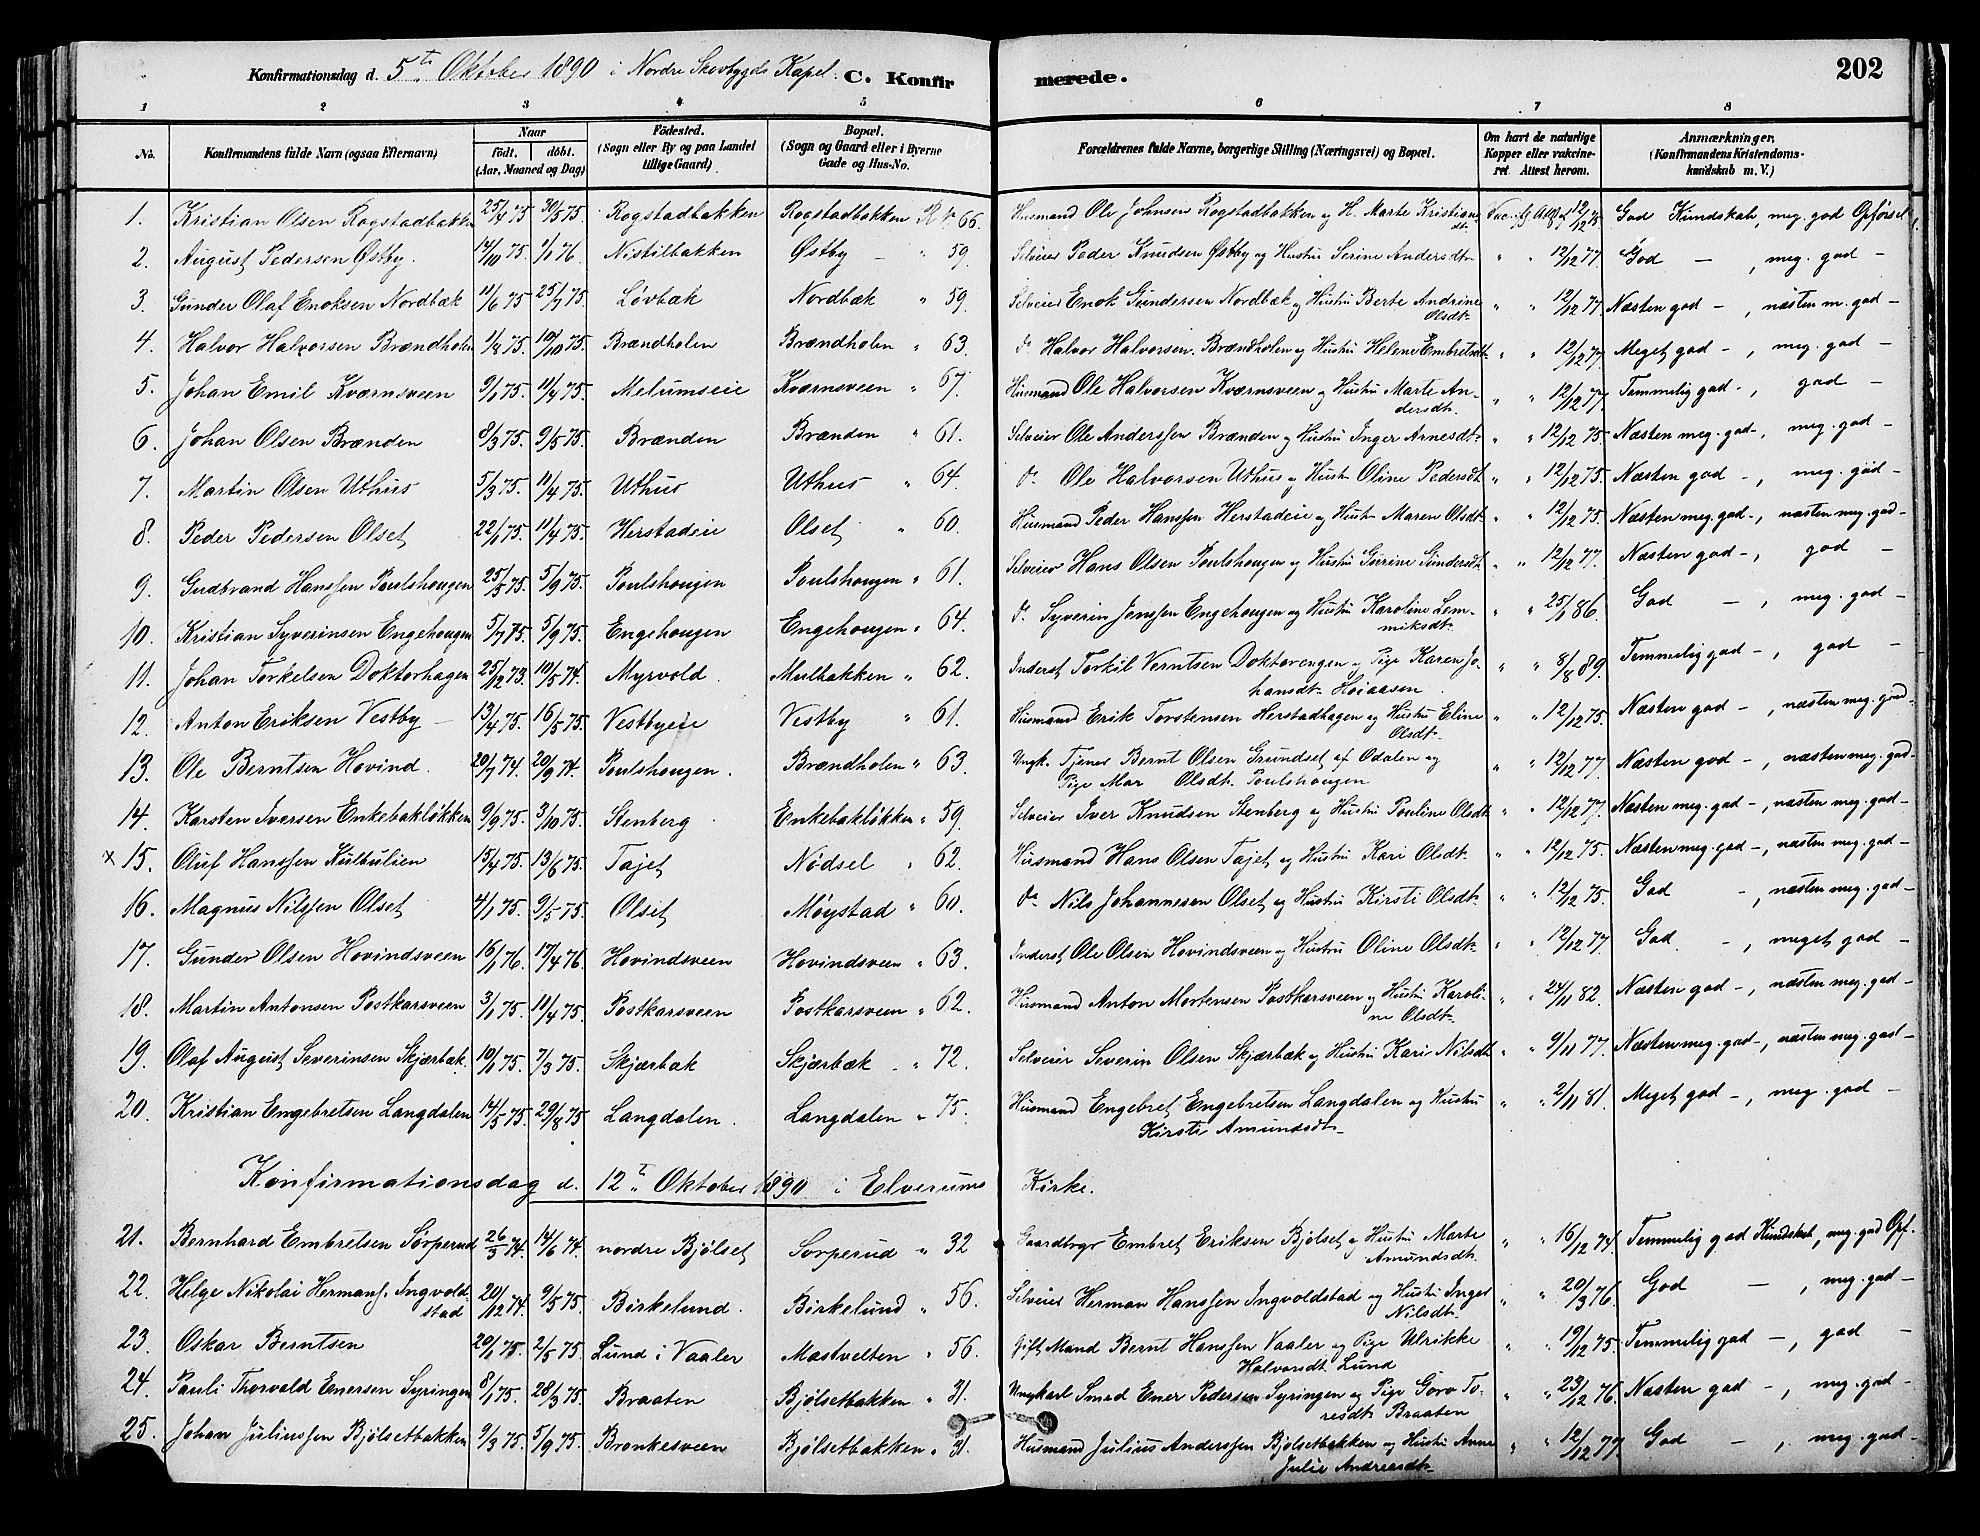 202
Konfirmationsdag d. 5te Oktober 1890 i Nordre Skovbygds Kapel. C. Konfirmerede.
1 2 3 4 5 6 7 8
No. Konfirmandens fulde Navn (ogsaa Efternavn) Naar født, døbt. (Aar, Maaned og Dag) Fødested. (Sogn eller By og paa Landet tillige Gaard) Bopæl. (Sogn og Gaard eller i Byerne Gade og Hus-No. Forældrenes fulde Navne, borgerlige Stilling (Næringsvei) og Bopæl. Om havt de naturlige Kopper eller vakcineret. Attest herom. Anmærkninger, (Konfirmandens Kristendomskundskab m. V.)
1. Kristian Olsen Rogstadbakken 25/4 75. 30/5 75. Rogstadbakken Rogstadbakken 66. Husmand Ole Johnsen Rogstadbakken og H. Marte Kristiansdt. 12/12 75. God Kundskab, meg. god Opførsel
2. August Pedersen Østby. 14/10 75. 1/1 76. Nistilbakken Østby — " 59. Selveier Peder Knudsen Østby og Hustru Serine Andersdt. " " 12/12 77. God —, meg. god —
3. Gunder Olaf Enoksen Nordbæk 11/6 75. 25/7 75. Løvbak Nordbæk " 59. Selveier Enok Gundersen Nordbæk og Hustru Berte Andrine Olsdt. " " 12/12 77. Næsten god —, næsten m. god —
4. Halvor Halvorsen Brændholen 1/8 75. 10/10 75. Brændholen Brændholen " 63. do Halvor Halvorsen Brændholen og Hustru Helene Embretsdt. " " 12/12 77. Meget god —, meg. god —
5. Johan Emil Kværnsveen 9/1 75. 11/4 75. Melumseie Kværnsveen " 67. Husmand Ole Halvorsen Kværnsveen og Hustru Marte Andersdt. " " 12/12 77. Temmelig god —, god —
6. Johan Olsen Brænden 8/3 75. 9/5 75. Brænden Brænden " 61. Selveier Ole Anderssen Brænden og Hustru Inger Arnesdt. " " 12/12 75. Næsten meg. god —, meg. god —
7. Martin Olsen Uthus 5/3 75. 11/4 75. Uthus Uthus " 64. do Ole Halvorsen Uthus og Hust. Oline Pedersdt. " " 12/12 75. Næsten god —, meg. god —
8. Peder Pedersen Olset 22/1 75. 11/4 75. Herstadeie Olset " 60. Husmand Peder Hanssen Herstadeie og Hust. Maren Olsdt. " " 12/12 75. Næsten meg. god —, næsten meg. god —
9. Gudbrand Hanssen Poulshougen 25/5 75. 5/9 75. Poulshougen Poulshougen " 61. Selveier Hans Olsen Poulshougen og Hustru Gurine Gundersdt. " " 12/12 77. Næsten god —, god —
10. Kristian Syverinsen Engehougen 5/7 75. 5/9 75. Engehougen Engehougen " 64. do Syverin Jonssen Engehougen og Hustru Karoline Lemmiksdt. " " 25/1 86. God —, meg. god —
11. Johan Torkelsen Doktorhagen 25/12 73. 10/5 74. Myrvold. Mulbakken " 62. Inderst Torkil Verntsen Doktorengen og Pige Karen Johansdt. Høiaasen " " 8/8 89. Temmelig god —, god —
12. Anton Eriksen Vestby — 13/4 75. 16/5 75. Vestbyeie Vestby " 61. Husmand Erik Torstensen Herstadhagen og Hustru Eline Olsdt. " " 12/12 75. Næsten god —, næsten meg. god —
13. Ole Berntsen Hovind. 20/7 74. 20/9 74. Poulshougen. Brændholen " 63. Ungk. Tjener Bernt Olsen Grundset af Odalen og Pige Mar Olsdt. Poulshougen " " 12/12 77. Næsten god —, næsten meg. god —
14. Karsten Iversen Enkebakløkken 9/9 75. 3/10 75. Stenberg Enkebakløkken " 59. Selveier Iver Knudsen Stenberg og Hustru Pouline Olsdt. " " 12/12 77. Næsten meg. god —, næsten meg. god —
x 15. Oluf Hanssen Kulbulien 15/4 75. 13/6 75. Tajet Nødsel " 62. Husmand Hans Olsen Tajet og Hustru Kari Olsdt. " " 12/12 75. Næsten meg. god —, næsten meg. god —
16. Magnus Nilssen Olset 4/1 75. 9/5 75. Olset Møystad " 60. do Nils Johannesen Olset og Hustru Kirsti Olsdt. " " 12/12 75. God —, næsten meg. god —
17. Gunder Olsen Hovindsveen 16/1 76. 17/4 76. Hovindsveen Hovindsveen " 63. Inderst Ole Olsen Hovindsveen og Hustru Oline Olsdt. " " 12/12 77. God —, meget god —
18. Martin Antonsen Postkarsveen 3/1 75. 11/4 75. Postkarsveen Postkarsveen " 62. Husmand Anton Mortensen Postkarsveen og Hustru Karoline Olsdt. " " 24/11 82. Næsten god —, næsten meg. god —
19. Olaf August Severinsen Skjærbæk. 10/1 75. 7/3 75. Skjærbæk Skjærbæk " 72. Selveier Severin Olsen Skjærbæk og Hustru Kari Nilsdt. " " 9/11 77. Næsten meg. god —, næsten meg. god —
20. Kristian Engebretsen Langdalen 14/5 75. 29/8 75. Langdalen. Langdalen " 75. Husmand Engebret Engebretsen Langdalen og Hustru Kirsti Amundsdt. " " 2/11 81. Meget god —, meg. god —
Konfirmationsdag d. 12te Oktober 1890 i Elverums Kirke.
21. Bernhard Embretsen Sørperud 26/3 74. 14/6 74. nordre Bjølset Sorperud " 32 Gaardbrgr Embret Eriksen Bjølset og Hustru Marte Amundsdt. " " 16/12 74. Temmelig god Kundskab, meg. god Opf.
22. Helge Nikolai Hermans. Ingvoldstad 20/12 74. 9/5 75. Birkelund. Birkelund " 56. Selveier Herman Hanssen Ingvoldstad og Hustru Inger Nilsdt. " " 20/3 76. God —, meg. god —
23. Oskar Berntsen 20/1 75. 2/5 75. Lund i Vaaler Mastvelten " 56. Gift Mand Bernt Hanssen Vaaler og Pige Ulrikke Halvorsdt. Lund " " 19/12 75. Temmelig god —, god —
24. Pauli Thorvald Enersen Syringen 8/1 75. 28/3 75. Braaten Bjølsetbakken " 31. Ungkarl Smed Ener Pedersen Syringen og Pige Goro Toresdt. Braaten " " 23/12 76. Næsten god —, meg. god —
25. Johan Juliussen Bjølsetbakken 9/3 75. 5/9 75. Bronkesveen Bjølsetbakken " 31. Husmand Julius Anderssen Bjølsetbakken og Hustru Anne Julie Andreasdt. " " 12/12 77. God —, meg. god —